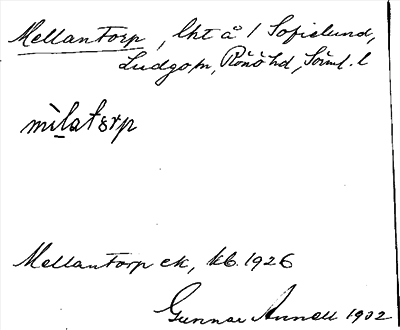 Mellantorp, lht å 1 Sofielund,
Ludgo sn, Rönö hd, Söml. l
mìlatorp
Mellantorp ek, kb. 1926
Gunnar Annell 1932